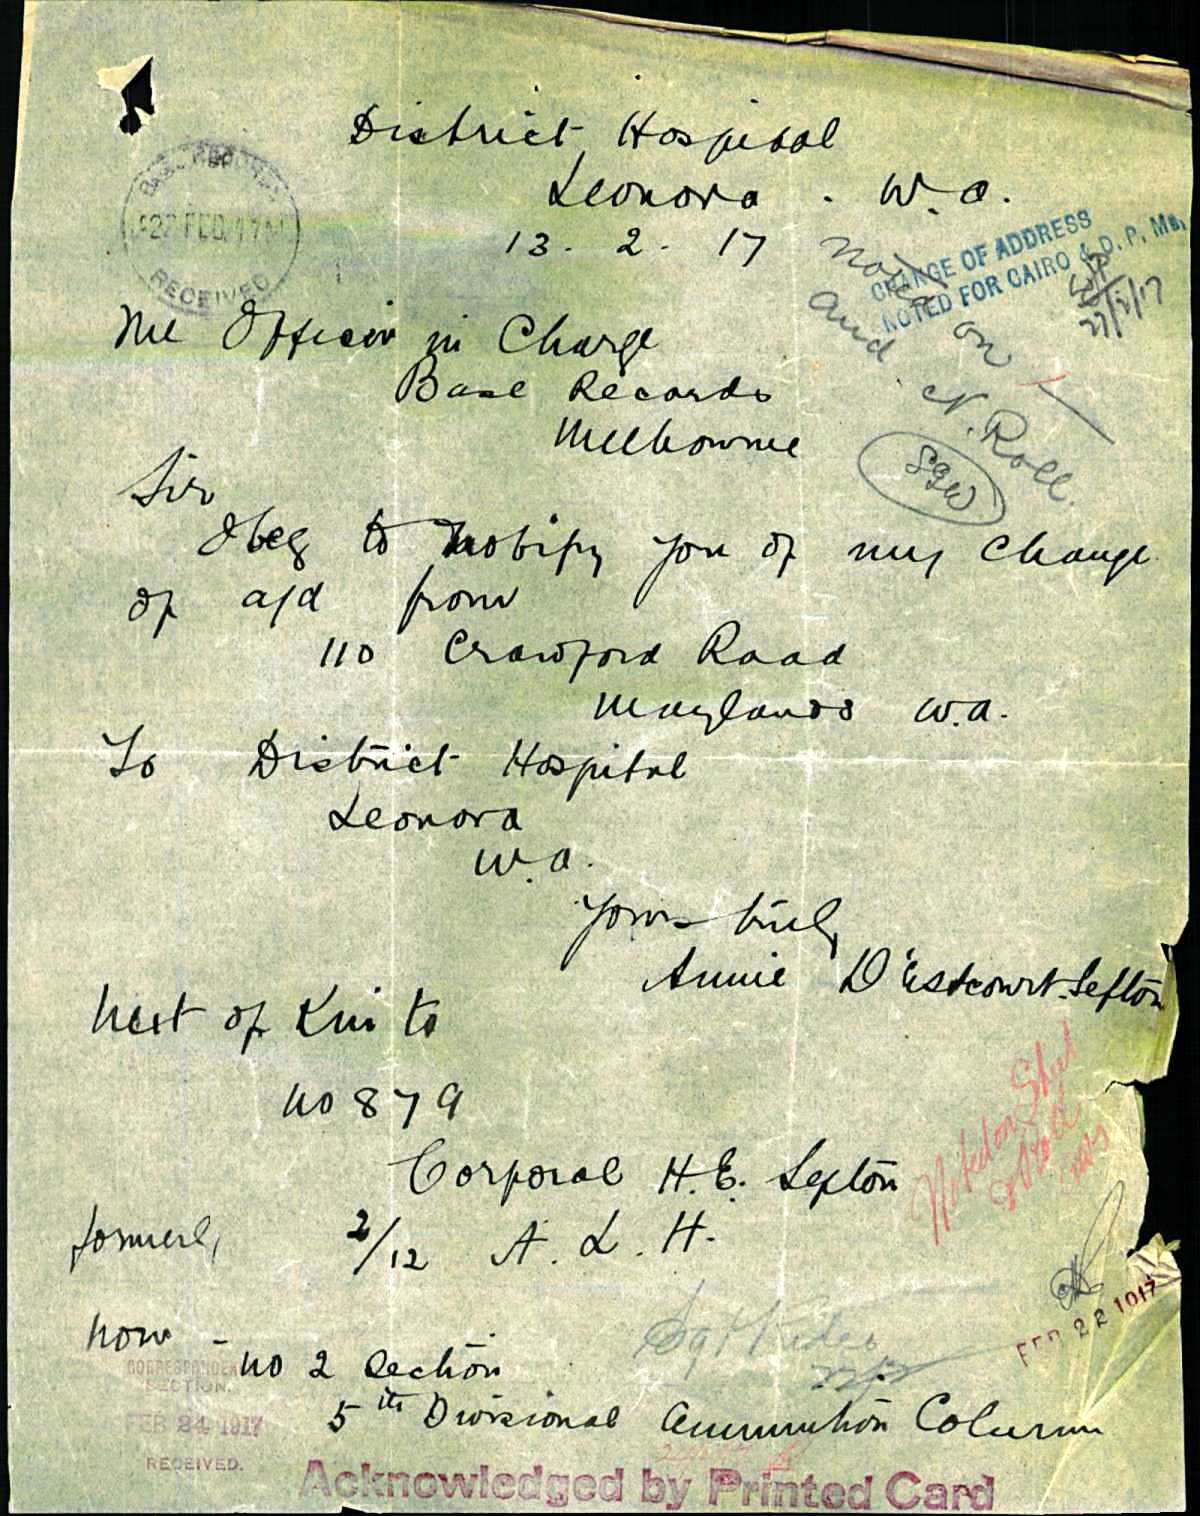 District Hospital
Leonora . W.A.
13. 2. 17
BASE RECORDS
22 FEB. 17
RECEIVED
CHANGE OF ADDRESS
NOTED FOR CAIRO & D.P. Ms,
27/2/17
Noted on
and N. Roll.
SGW
The Officer in Charge
Base Records
Melbourne
Sir
I beg to notify you of my change
of a/d from
110 Crawford Road
Maylands W.A.
To District Hospital
Leonora
W.A.
Yours truly
Annie D'Estcourt-Sefton
Next of Kin to
No 879
Corporal H.E. Sefton
formerly 2/12 A. L. H.
Noted on Sheet
& Roll
FEB 22 1917
now - No 2 Section
5th Divisional Ammunition Column
CORRESPONDENCE
SECTION.
FEB 24 1917
RECEIVED.
Acknowledged by Printed Card